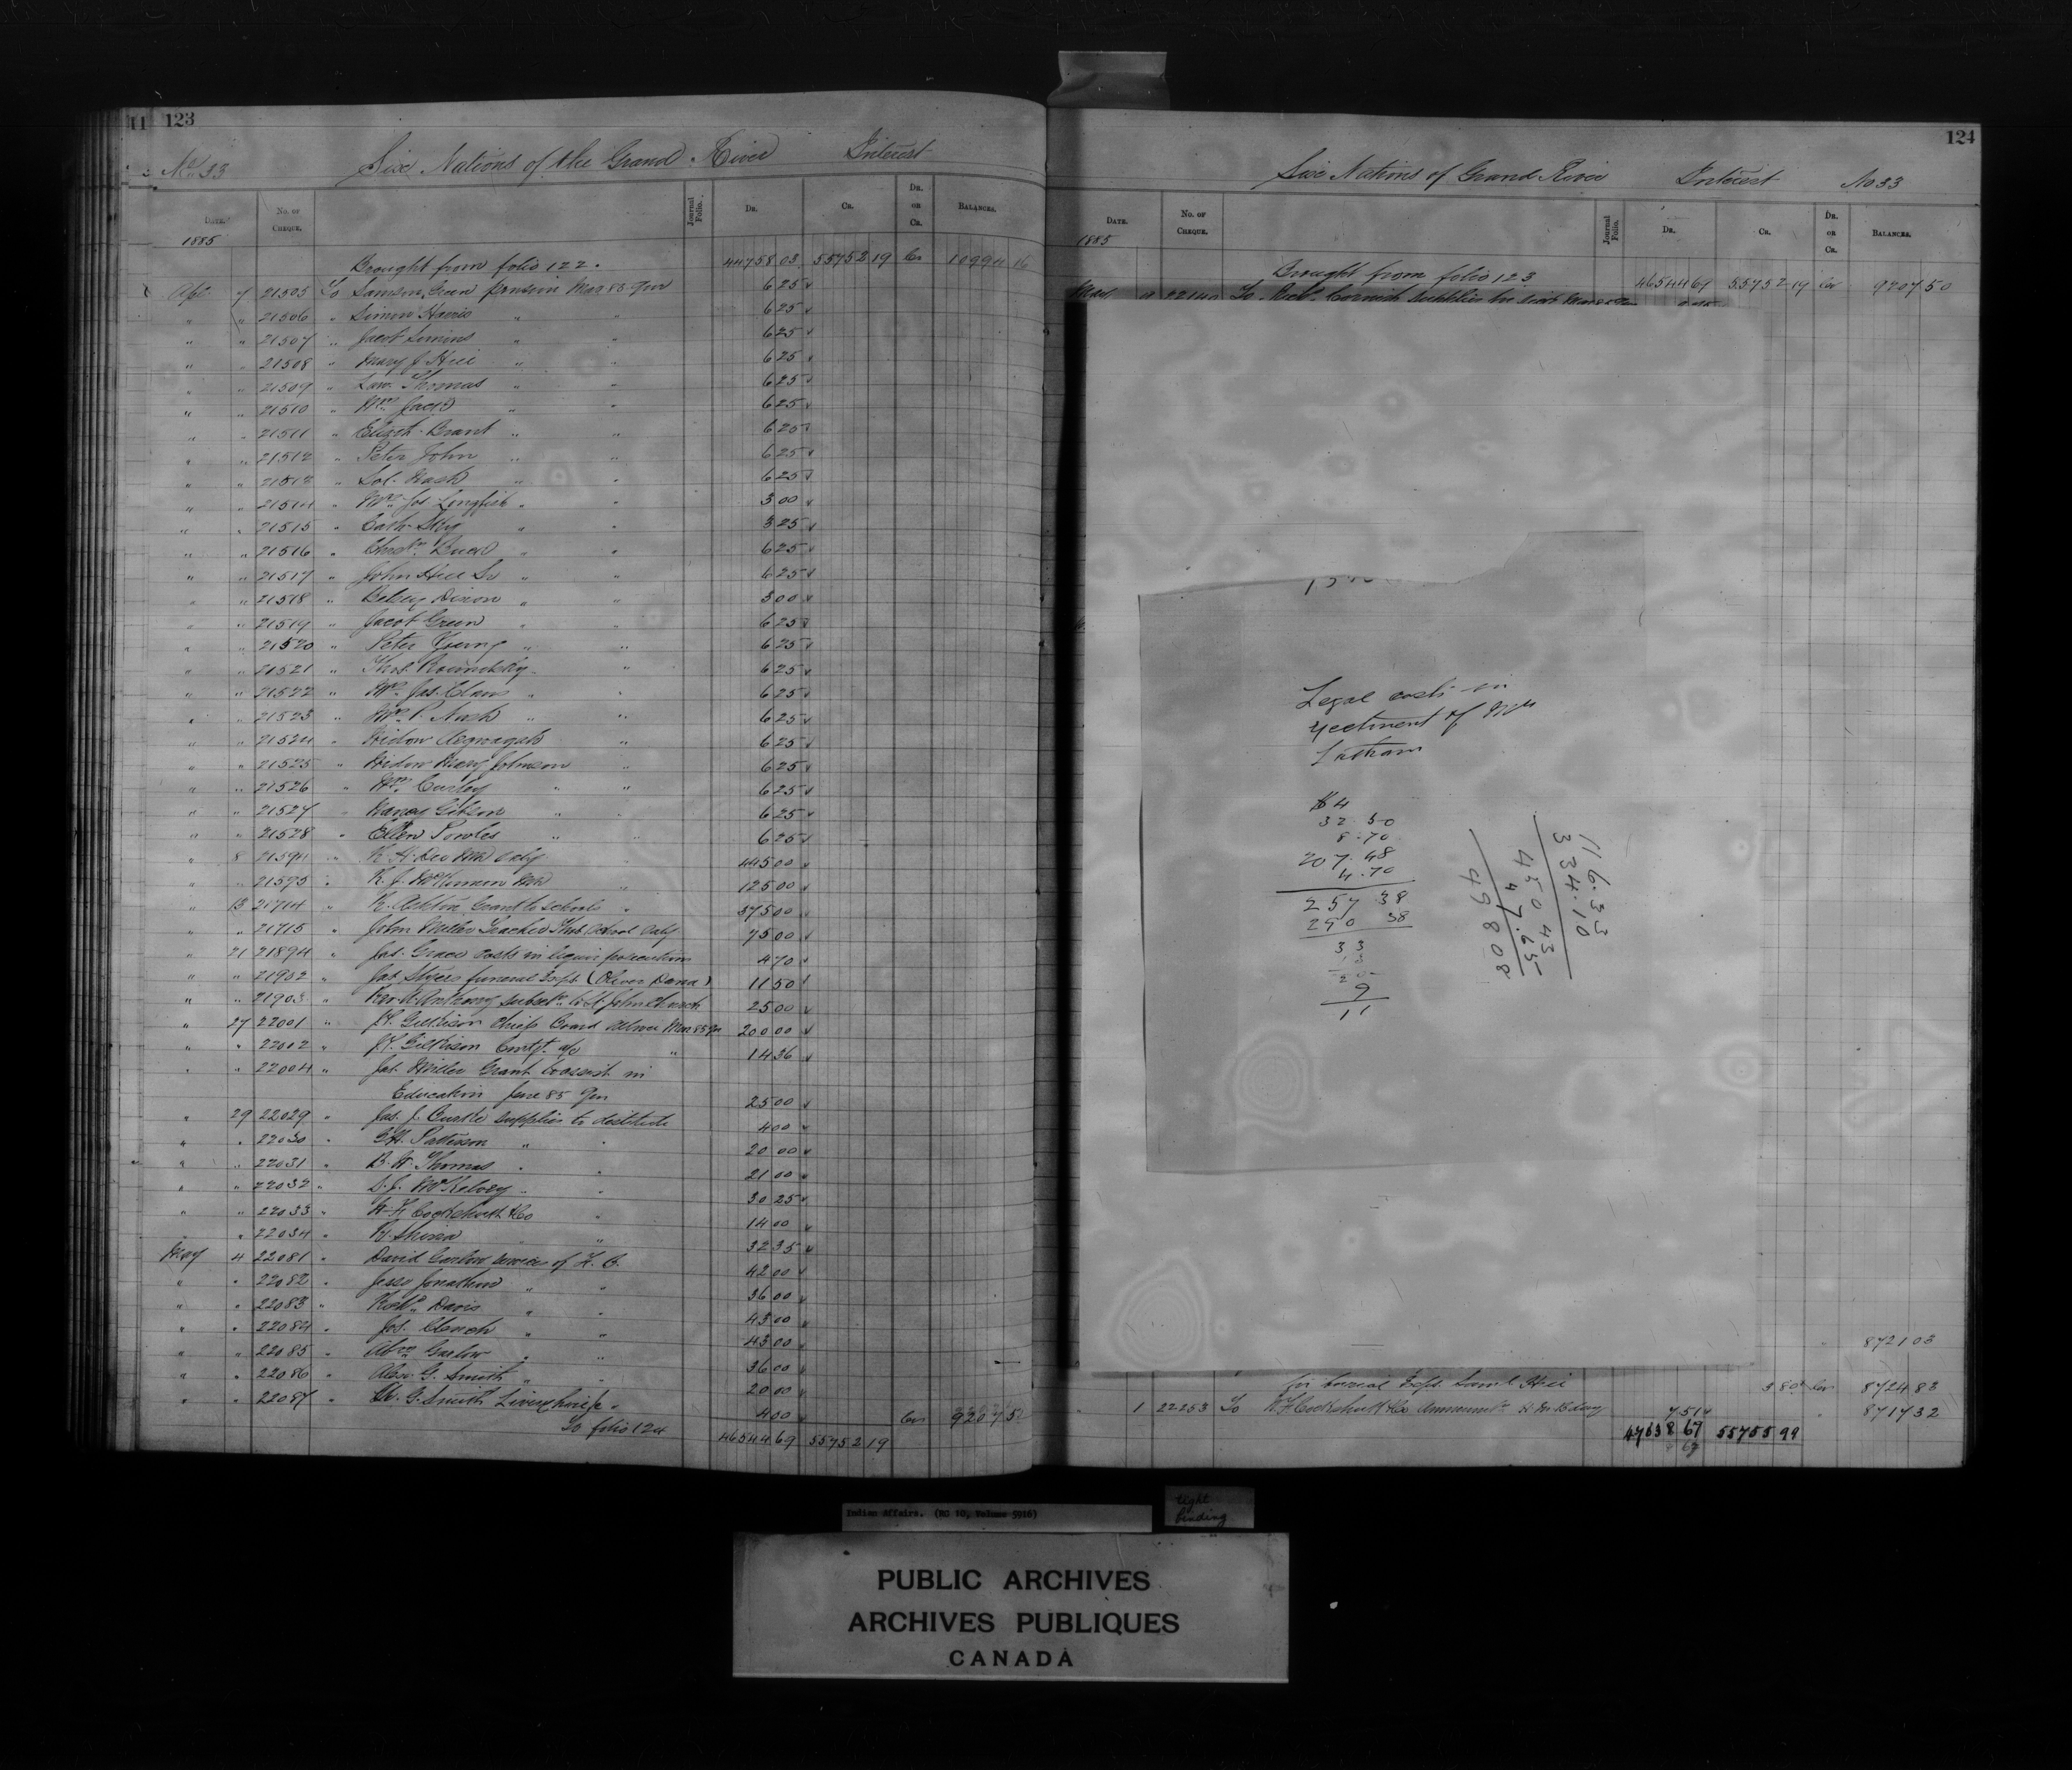 11 123
No 33 Six Nations of the Grand River Interest
DATE. No. OF CHEQUE. Journal Folio. DR. CR. DR. OR CR. BALANCES.
1885
Brought from folio 122. 44758 03 55752 19 Cr 10994 16
Apl 7 21505 To Samson Green pension Mar 85 Qrr 6 25
" " 21506 " Simon Harris " " 6 25
" " 21507 " Jacob Simons " " 6 25
" " 21508 " Mary J. Hill " " 6 25
" " 21509 " Law. Thomas " " 6 25
" " 21510 " Wm 6 25
" " 21511 " Elizth Brant " " 6 25
" " 21512 " Peter John " " 6 25
" " 2151 " Sol. Nash " " 6 25
" " 21514 " Mrs Jos. Longfish " " 3 00
" " 21515 " Cath. Sky " " 3 25
" " 21516 " " " 6 25
" " 21517 " John Hill Sr " " 6 25
" " 21518 " Betsy Dixon " " 3 00
" " 21519 " Jacob Green " " 6 25
" " 21520 " Peter Young " " 6 25
" " 21521 " Thos. Roundsky " 6 25
" " 21522 " Mrs Jas. Claus " " 6 25
" " 21523 " Mrs P. Nash " " 6 25
" " 21524 " Widow " 6 25
" " 21525 " Widow Mary Johnson " 6 25
" " 21526 " Wm Curley " " 6 25
" " 21527 " Nancy Gibson " " 6 25
" " 21528 " Ellen Powles " " 6 25
" 8 21594 " R. H. Dee MD Saly 445 00
" " 21595 " R. J. McKinnon MD " 125 00
" 13 21714 " R. Ashton Grant to schools " 375 00
" " 21715 " John Miller Teacher School Saly 75 00
" 21 21894 " Jas. Grace costs in liquor prosecution 4 70
" " 21902 " Jas Styers funeral Exps. (Oliver Dana) 11 50
" " 21903 " Rev. A. Anthony subsn. to St John Church 25 00
" 27 22001 " J.T. Gilkison Chiefs Board Allnce Mar 85 Qr 200 00
" " 22002 " J.T. Gilkison Contgt. a/c " 14 36
" " 22004 " Jas. Miller Grant to assist in
Education June 85 Qrr 25 00
" 29 22029 " Jas. J. supplies to destitute 4 00
" " 22030 " Patterson " " 20 00
" " 22031 " B. W. Thomas " " 21 00
" " 22032 " S. J. McKelvey " " 30 25
" " 22033 " W. F. Cockshutt & Co " 14 00
" " 22034 " " " 32 35
May 4 22081 " David Garlow services of F. B. 42 00
" " 22082 " Jesse Jonathan " " 36 00
" " 22083 " Robt. Davis " " 43 00
" " 22084 " Jos. Clench " " 43 00
" " 22085 " Abm Garlow " " 36 00
" " 22086 " Alex. G. Smith " " 20 00
" " 22087 " A. G. Smith Livery hire 4 00 Cr 9207 50
To folio 124 46544 69 55752 19
124
Six Nations of Grand River Interest No 33
DATE. No. OF CHEQUE. Journal Folio. DR. CR. DR. OR CR. BALANCES.
1885
Brought from folio 123 46544 69 55752 19 Cr 9207 50
May 22140 To Cornish supplies
Legal costs in
ejectment of Mrs
Latham
$4
32.50
8.70
207.48
4.70
257 38
290 38
33
13
20
9
11
116.33
334.10
450 43
47.65
498 08
8721 03
for burial Exps. Saml Hill 3 80 Cr 8724 83
" 1 22253 To W F Cockshutt & Co H M B day 7 51 " 8717 32
47038 67 55755 99
67
Indian Affairs. (RG 10, Volume 5916)
tight
binding
PUBLIC ARCHIVES
ARCHIVES PUBLIQUES
CANADA